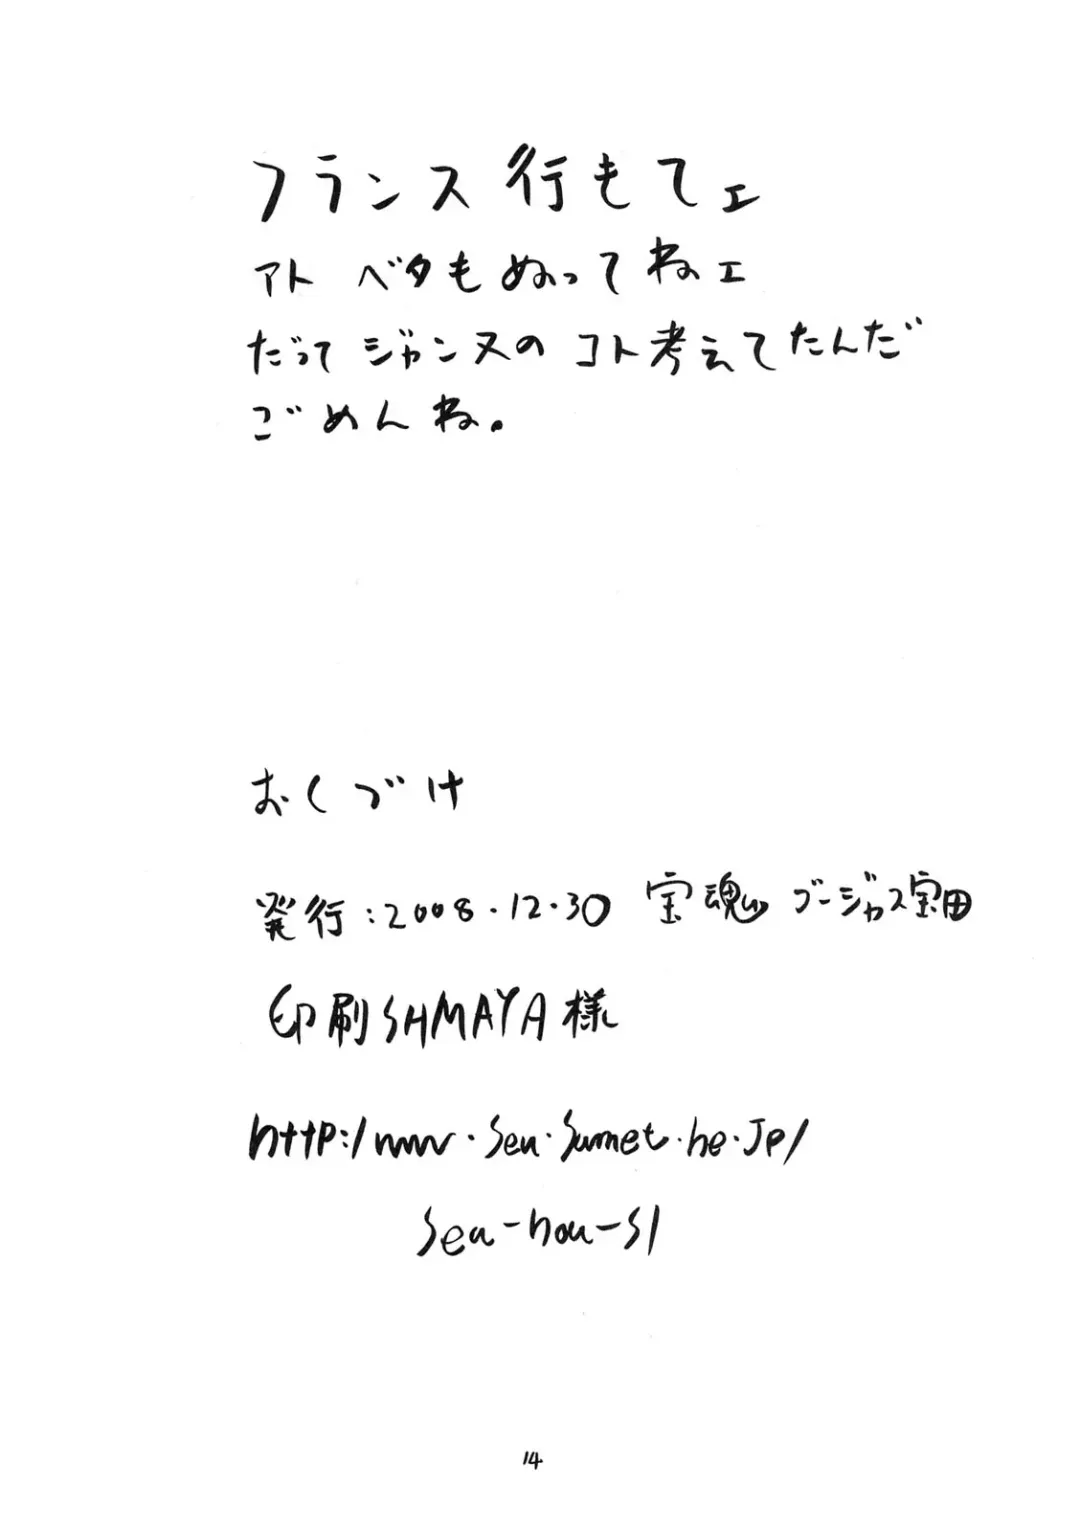 フランス行もてェ
アト ベタもぬってねェ
だって ジャンヌの コト考えてたんだ
ごめんね。
おくづけ
発行:2008.12.30 宝魂 ゴージャス宝田
印刷 SHMAYA様
http:/www.sea.sumet.ne.jp/
sea-hou-s/
14